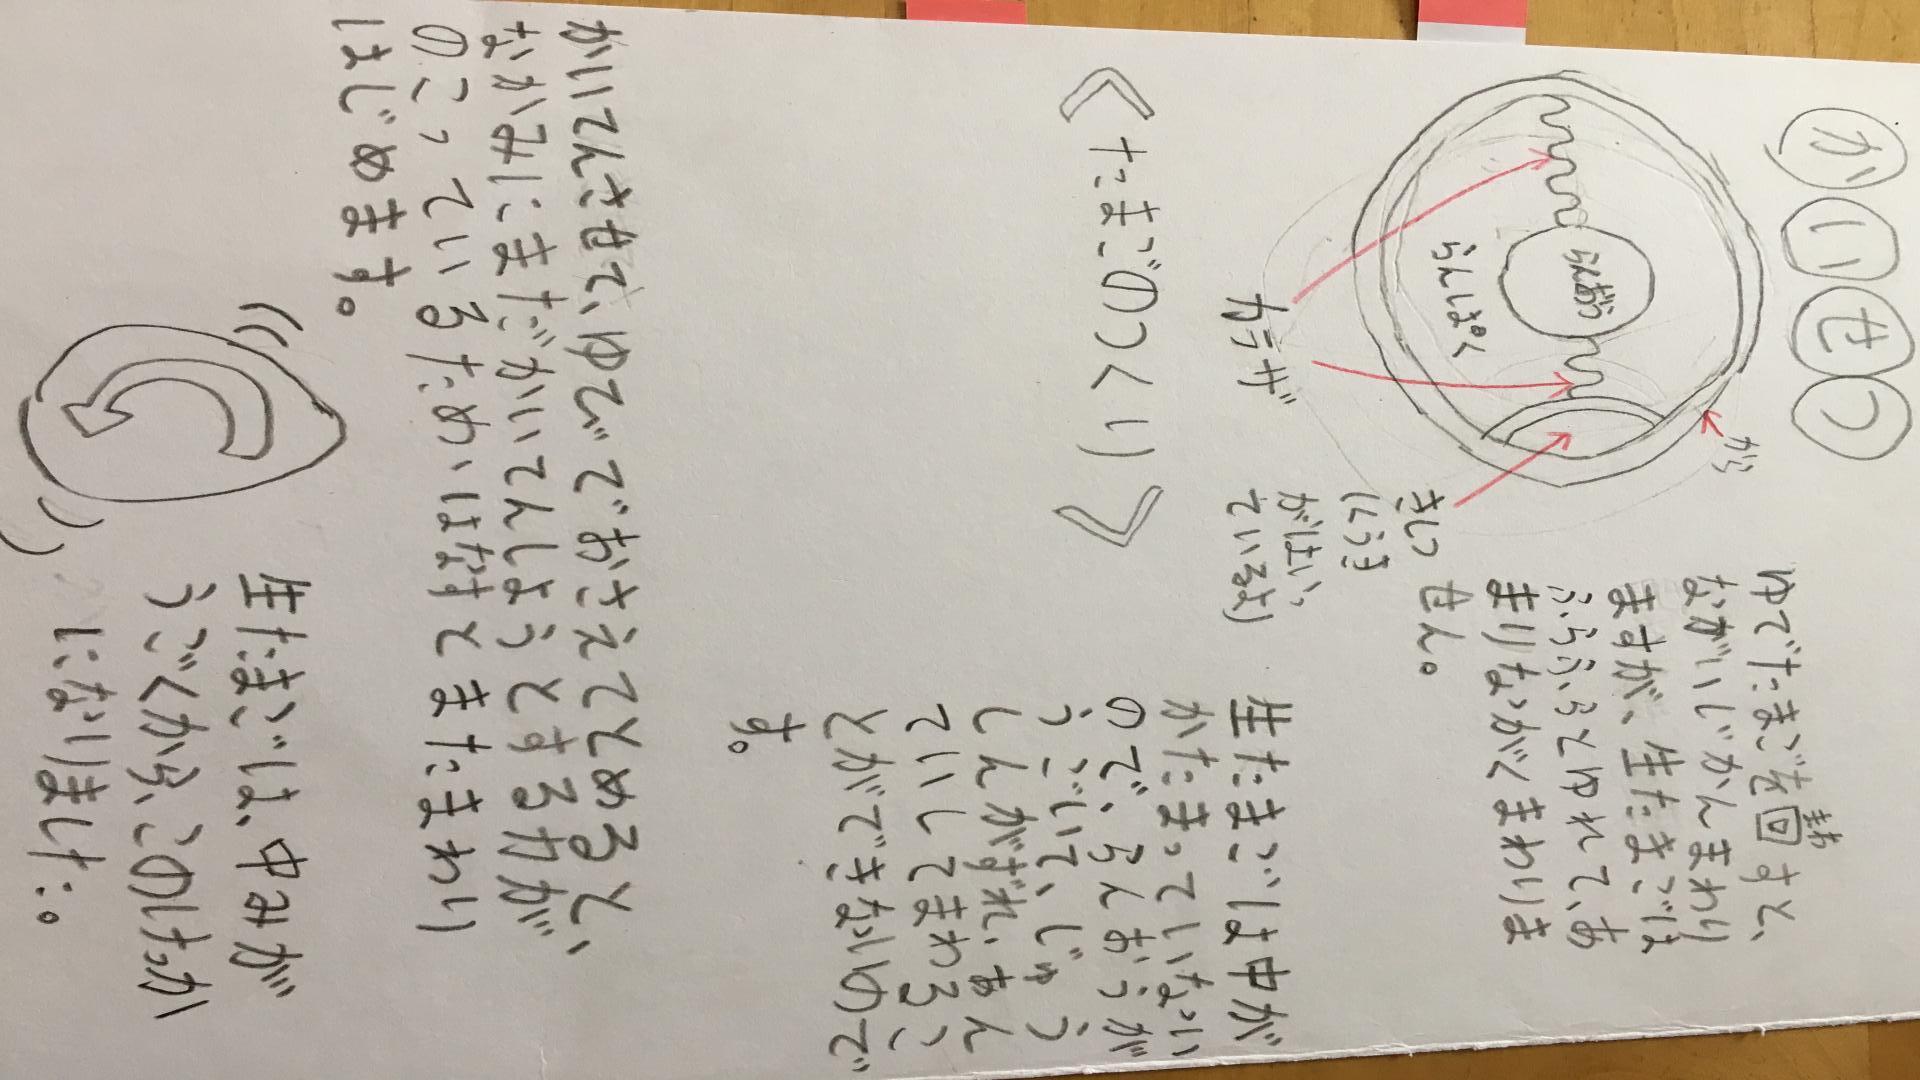 かいせつ
から
らんおう
らんぱく
カラザ
きしつ
(くうき
がはいっ
ているよ)
まわ
ゆでたまごを回すと、
ながいじかんまわり
ますが、生たまごは
ふらふらとゆれて、あ
まりながくまわりま
せん。
《たまごのつくり》
生たまごは中が
かたまっていない
ので、らんおうが
うごいて、じゅう
しんがずれ、あん
ていしてまわるこ
とができないので
す。
かいてんさせて、ゆびでおさえてとめると、
なかみにまだかいてんしようとする力が
のこっているため、はなすとまたまわり
はじめます。
生たまごは、中みが
うごくから、このけっか
になりました。